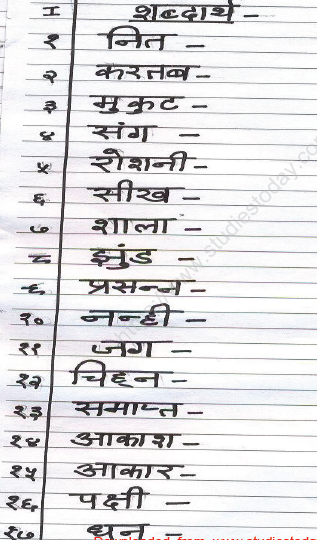 I शब्दार्थ -
१ नित -
२ करतब -
३ मुकुट -
४ संग -
५ रोशनी -
६ सीख -
७ शाला -
८ झुंड -
९ प्रसन्न -
१० नन्ही -
११ जग -
१२ चिह्न -
१३ समाप्त -
१४ आकाश -
१५ आकार -
१६ पक्षी -
१७ धन -
www.studiestoday.com